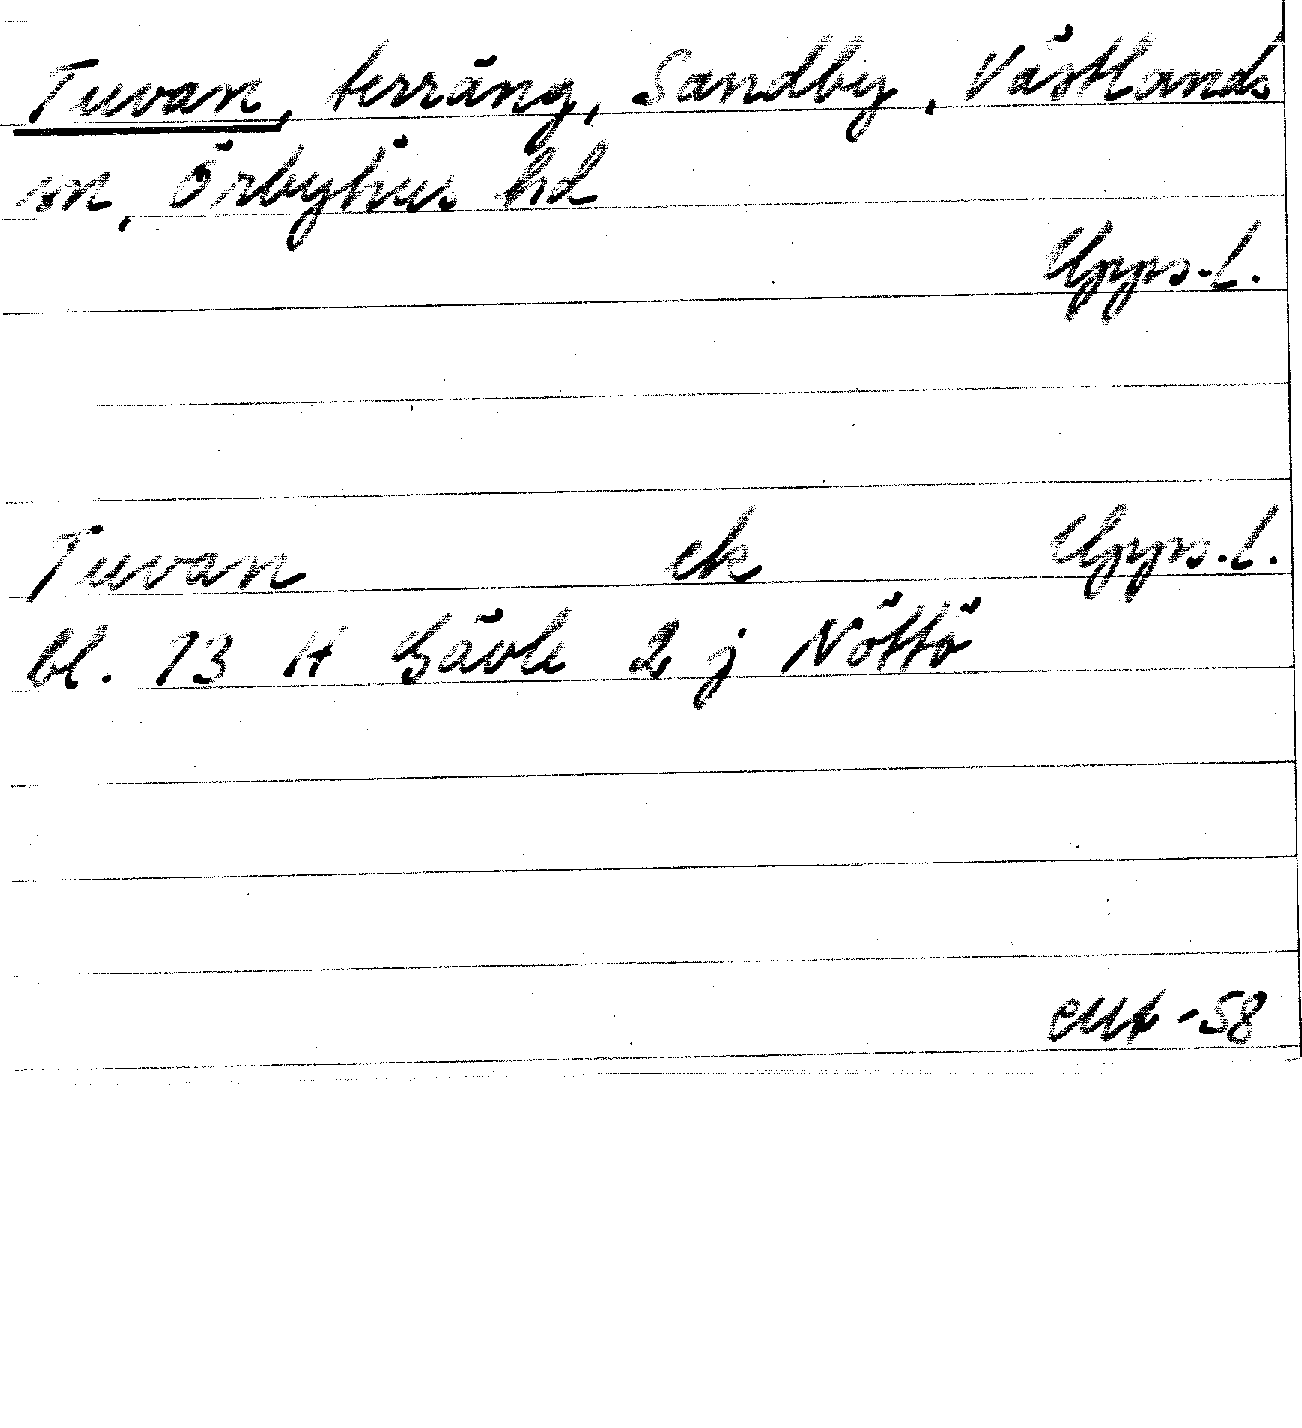 Tuvan, terräng, Sandby, Västlands
sn, Örbyhus hd
Upps.l.
Tuvan ek Upps.l.
bl. 13 H Gävle 2 j Nöttö
-58